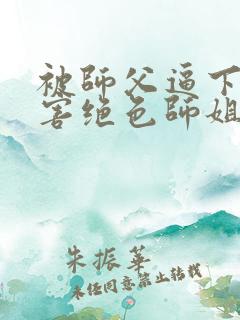 被師父逼下
害绝色師姐
朱振華
未经同意禁止转载